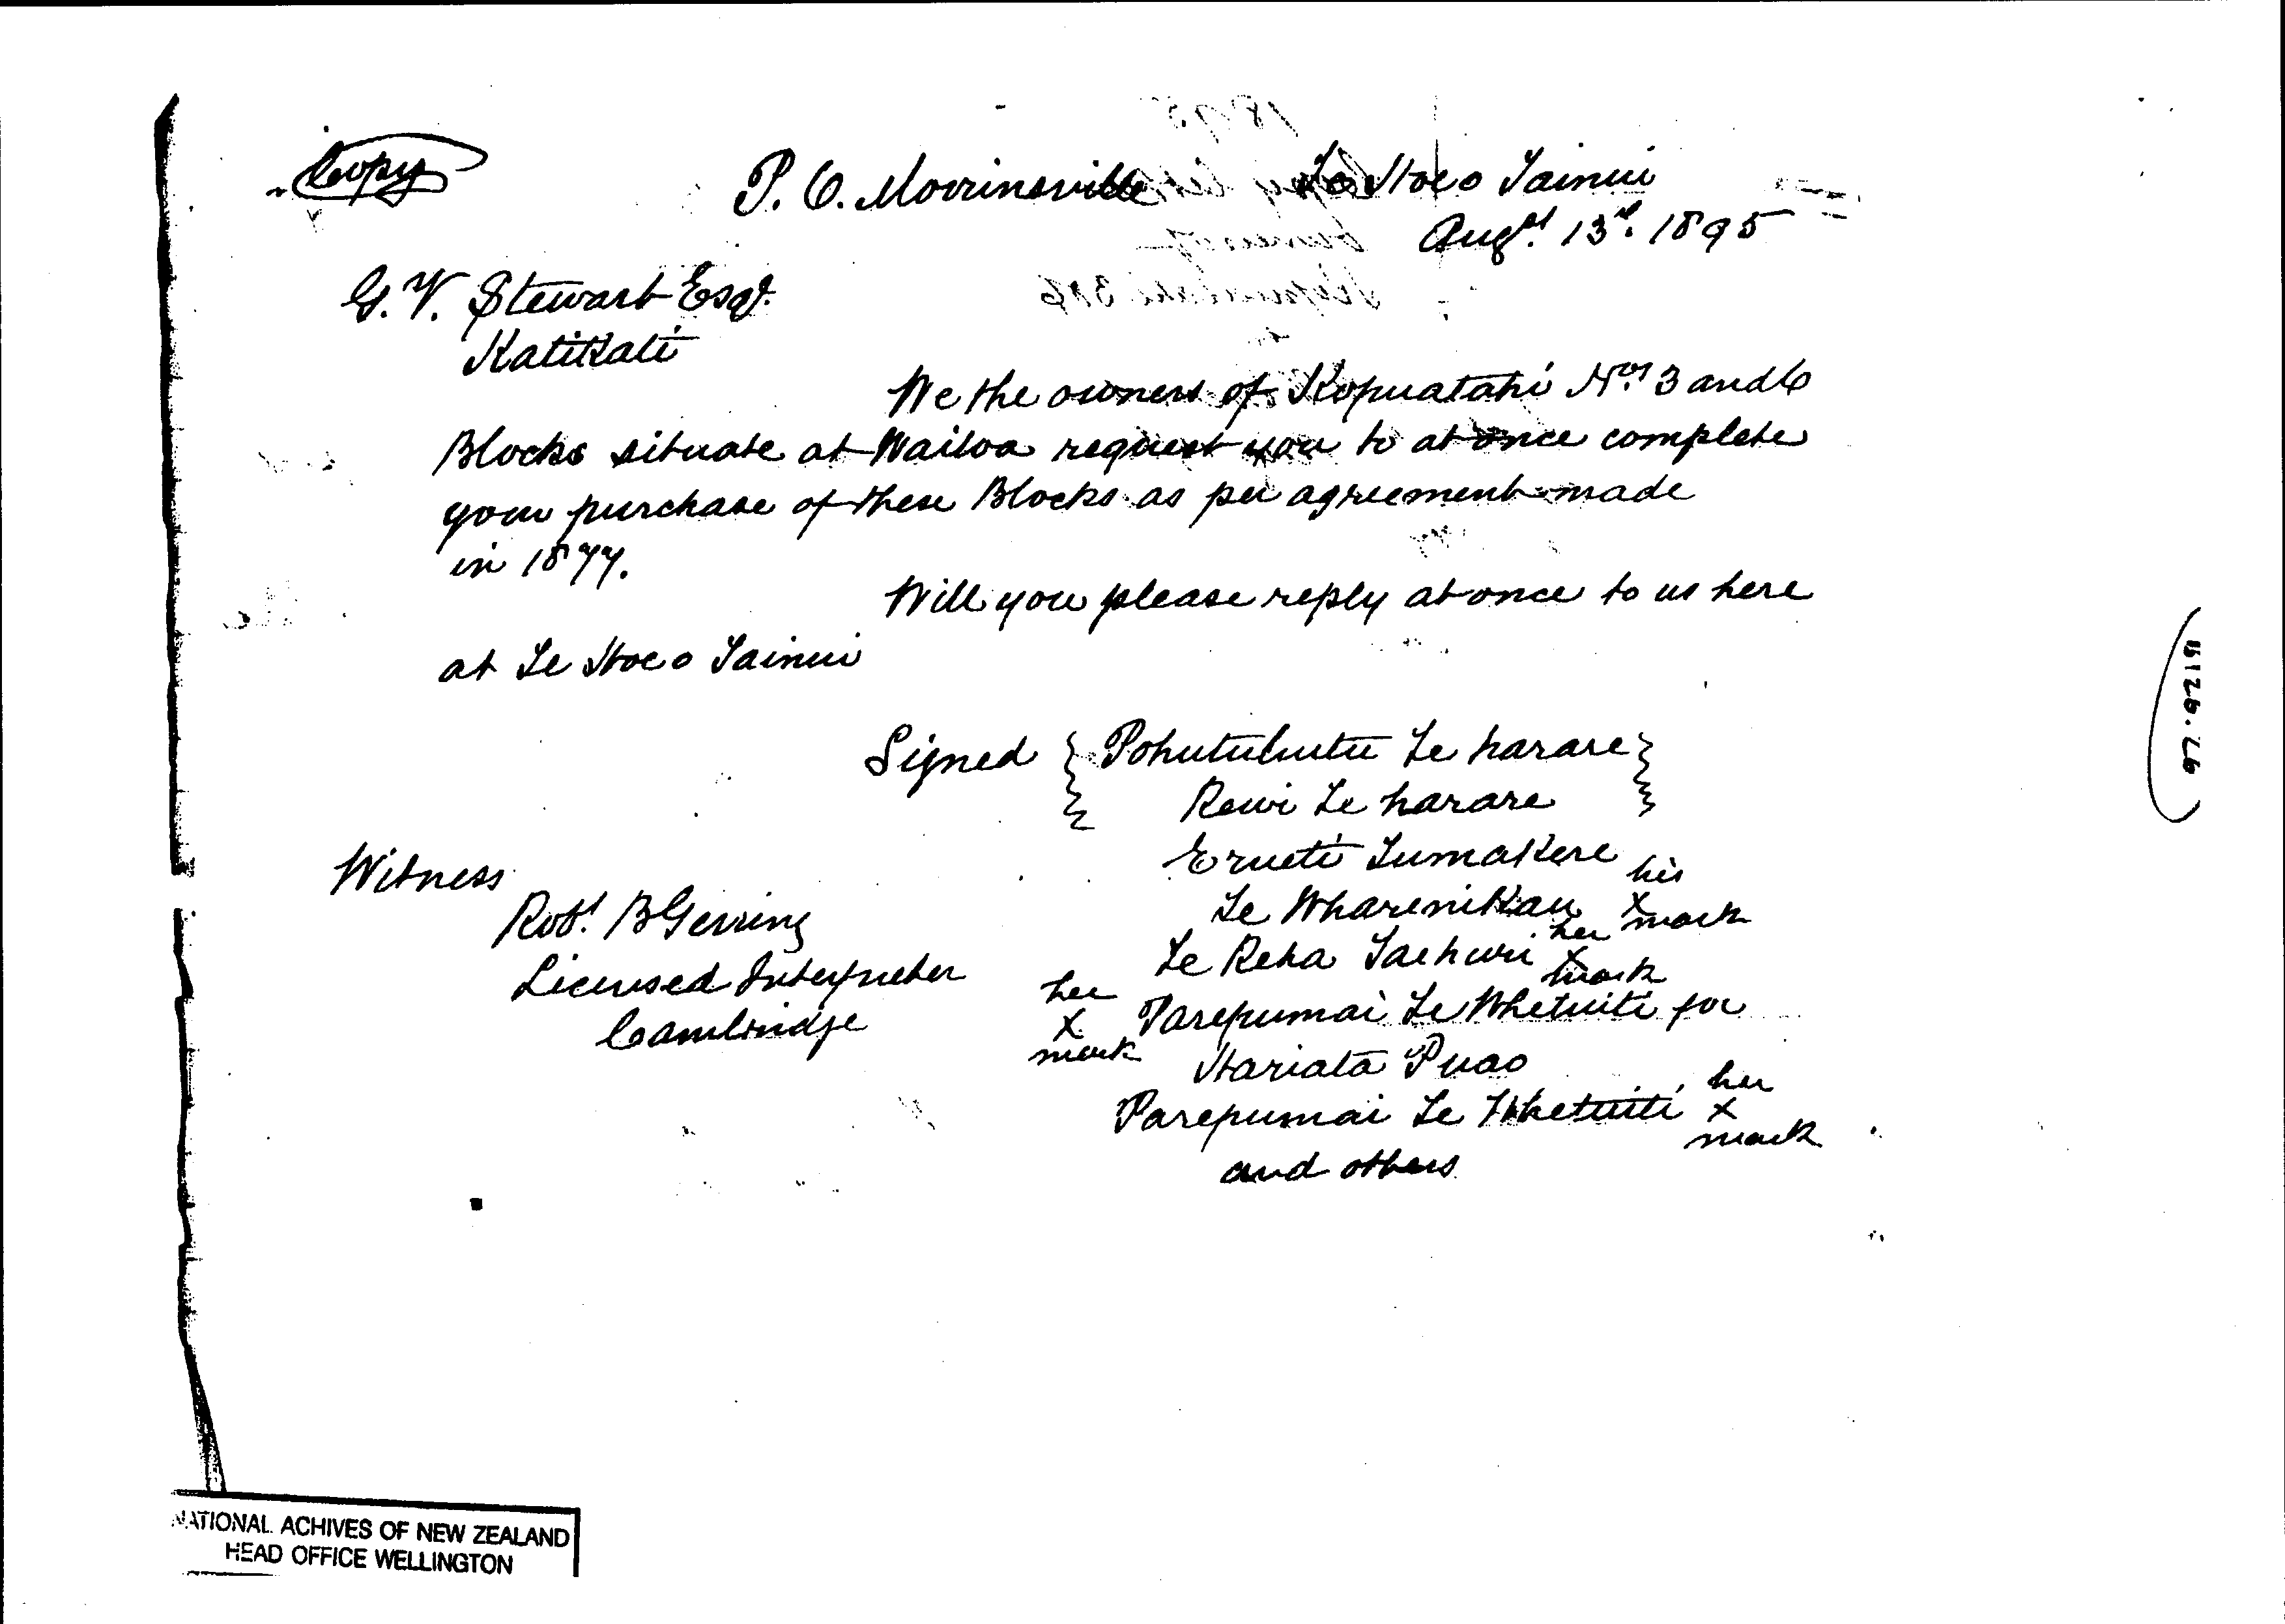 Copy
P. O. Morrinsville Te Hoe o Tainui
Augst 13th. 1895
G. V. Stewart Esqr.
Katikati
We the owners of Kopuatahi Nos 3 and 6
Blocks situate at Wailoa request you to at once complete
your purchase of these Blocks as per agreement made
in 1877.
Will you please reply at once to us here
at Te Hoe o Tainui
Signed { Pohutuhutu Te harare }
Rewi Te harare
Erueti Tumakere
Witness
his
Te Wharenikau x
mark
Robt. B Gerring
her
Te Reha Taehuri x
mark
Licensed Interpreter
her
x Parepumai Te Whetuiti for
mark
Cambridge
Hariata Puao
her
Parepumai Te Whetuiti x
mark
and others
NATIONAL ACHIVES OF NEW ZEALAND
HEAD OFFICE WELLINGTON